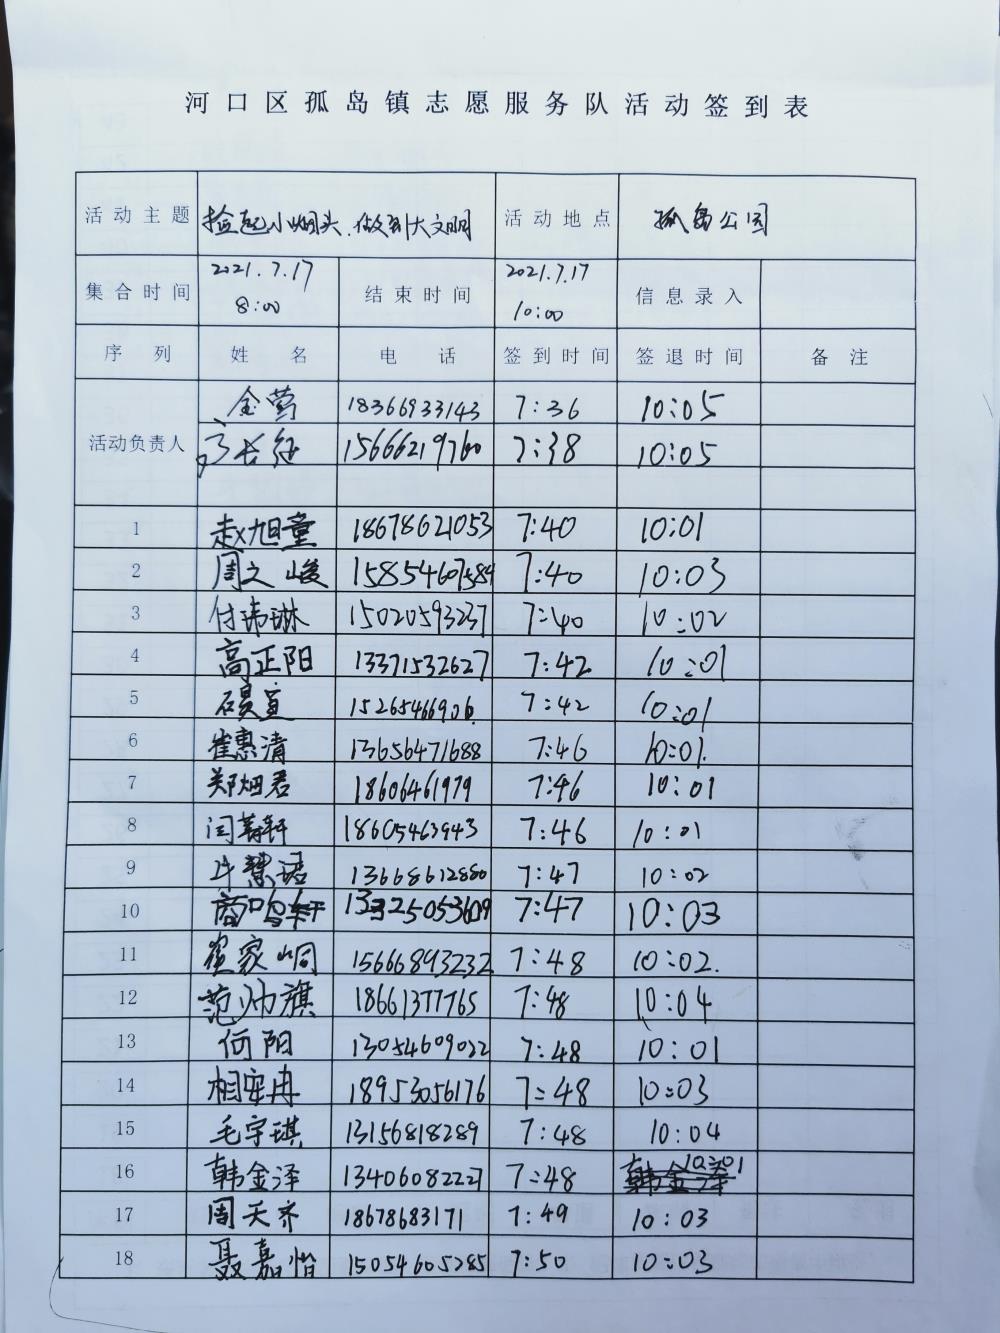 河口区孤岛镇志愿服务队活动签到表
活动主题 捡起小烟头、做到大文明 活动地点 孤岛公园
集合时间 2021.7.17 8:00 结束时间 2021.7.17 10:00 信息录入
序列 姓名 电话 签到时间 签退时间 备注
活动负责人
金莺 18366933143 7:36 10:05
15666219760 7:38 10:05
1 赵旭童 18678621053 7:40 10:01
2 周之峻 15854607584 7:40 10:03
3 付琳 15020593237 7:40 10:02
4 高正阳 13371532627 7:42 10:01
5 15265466906 7:42 10:01
6 崔惠清 13656471688 7:46 10:01
7 郑烟君 18606461979 7:46 10:01
8 闫菁轩 18605463943 7:46 10:01
9 牛慧语 13668612880 7:47 10:02
10 商鸣轩 13325053609 7:47 10:03
11 崔家峒 15666893232 7:48 10:02
12 范帅旗 18661377765 7:48 10:04
13 何阳 13054609022 7:48 10:01
14 相安冉 18953056176 7:48 10:03
15 毛宇琪 13156818289 7:48 10:04
16 韩金泽 13406082227 7:48 10:01
17 周天齐 18678683171 7:49 10:03
18 聂嘉怡 15054605285 7:50 10:03